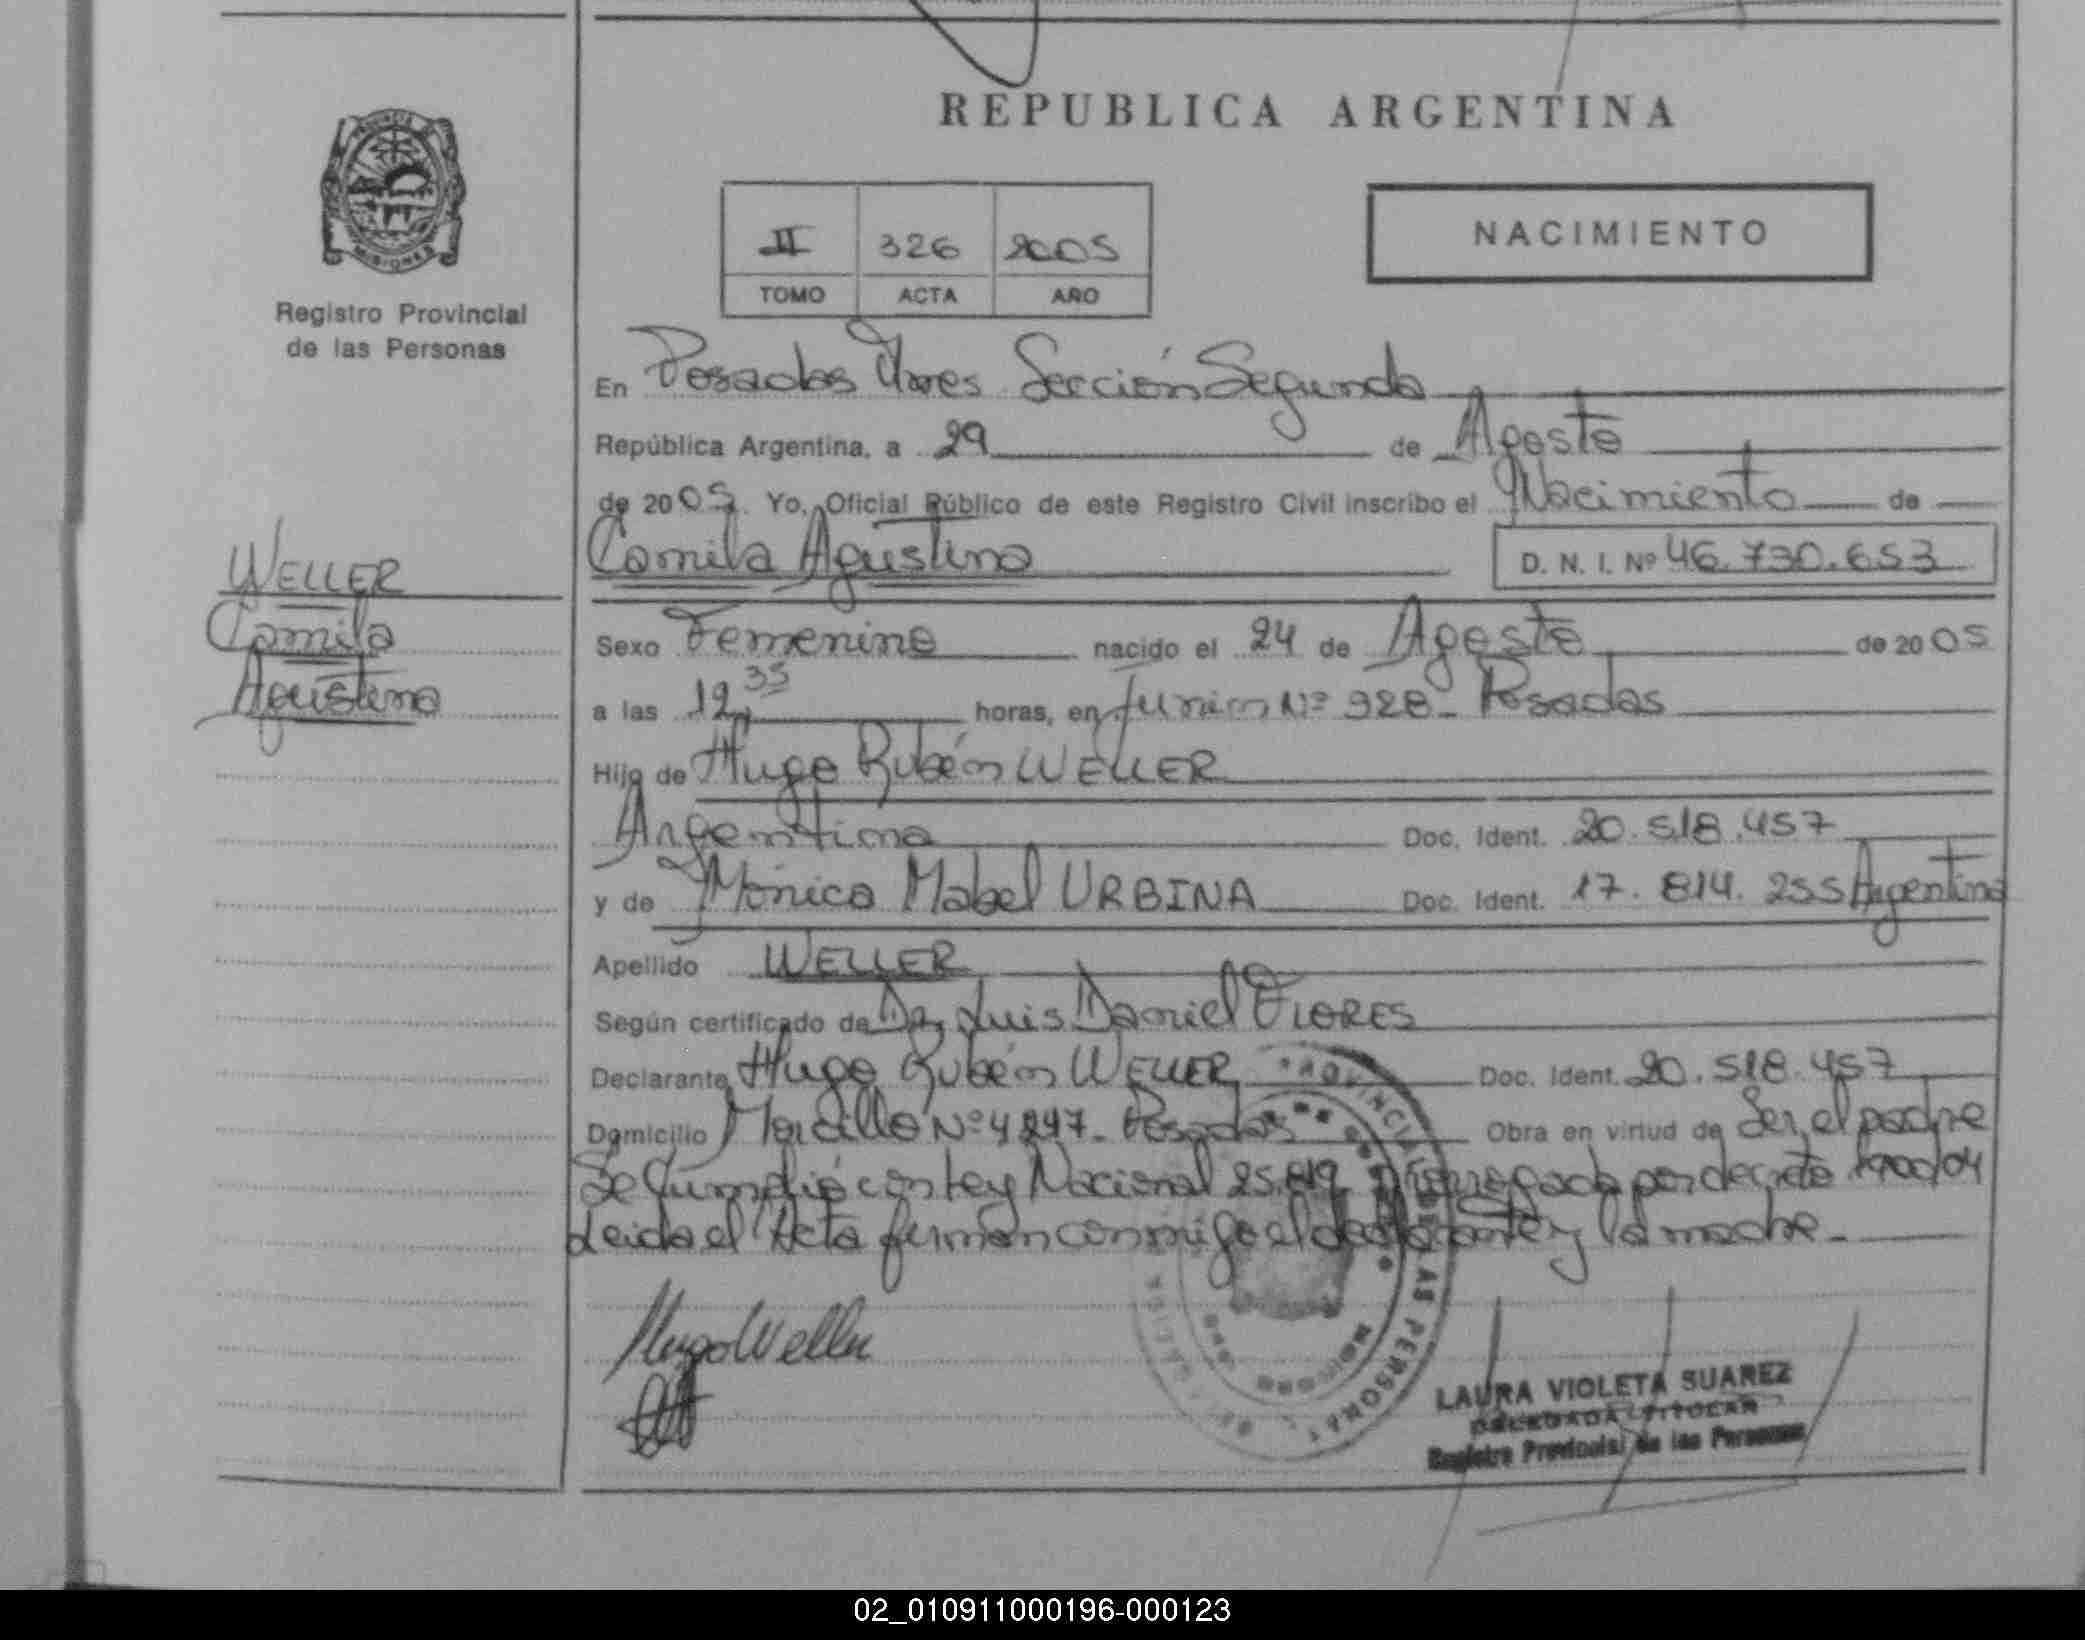 REPUBLICA ARGENTINA
PROVINCIA DE
MISIONES
Registro Provincial
de las Personas
NACIMIENTO
II 326 2005
TOMO ACTA AÑO
En Posadas Mnes Sección Segunda
República Argentina, a 29 de Agosto
de 2005. Yo, Oficial Público de este Registro Civil inscribo el Nacimiento de
Camila Agustina D. N. I. Nº 46.730.653
WELLER
Camila
Agustina
Sexo Femenino nacido el 24 de Agosto de 2005
a las 12,35 horas, en Junin Nº 928 - Posadas
Hijo de Hugo Rubén WELLER
Argentina Doc. Ident. 20.518.457
y de Mónica Mabel URBINA Doc. Ident. 17.814.255 Argentina
Apellido WELLER
Según certificado de Dr. Luis Daniel FLORES
Declarante Hugo Rubén WELLER Doc. Ident. 20.518.457
Domicilio Nº 4247 - Posadas Obra en virtud de Ser el padre
Se Cumplió con Ley Nacional 25.819 por decreto 1900/04
Leida el Acta firman conmigo el declarante y la madre.-
Hugo Weller
LAURA VIOLETA SUAREZ
DELEGADA TITULAR
Registro Provincial de las Personas
02_010911000196-000123